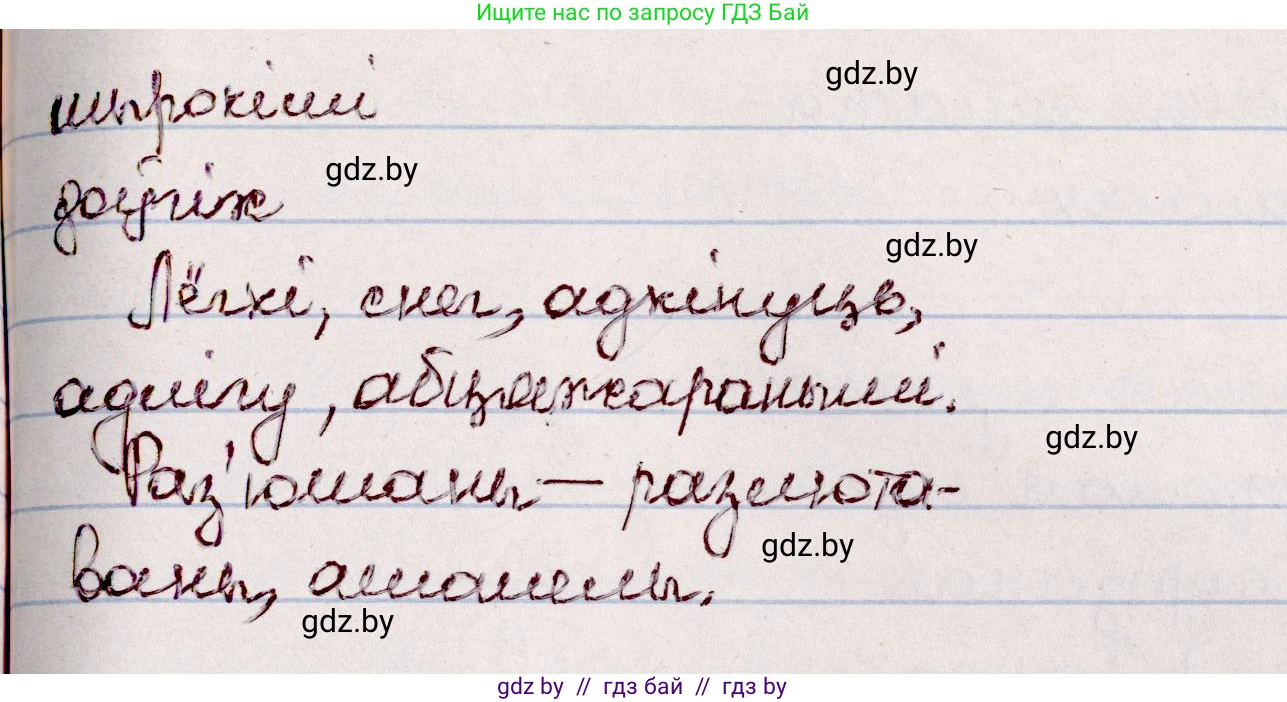 Ищите нас по запросу ГДЗ Бай
gdz.by
шырокімі
gdz.by
доўгіж
gdz.by
Лёгкі, снег, адкінуць,
адлігу, абцяжараныміі.
gdz.by
Раз'юшаны — раз
ваны,
gdz.by
gdz.by
gdz by // гдз бай // гдз by